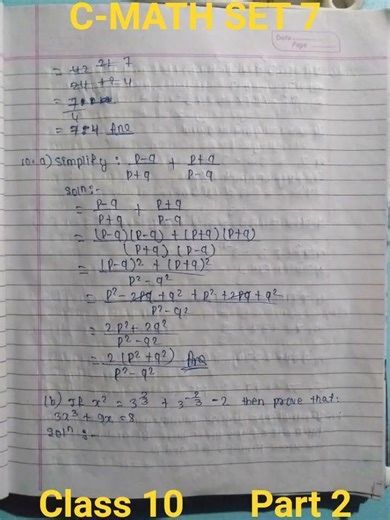 C-MATH SET 7
Date
Page
= 42 21 7
24 12 4
= 7
4
= 7:4 Ans
10. a) Simplify : p-q/p+q + p+q/p-q
Soln:-
= p-q/p+q + p+q/p-q
= (p-q)(p-q) + (p+q)(p+q)
(p+q) (p-q)
= (p-q)² + (p+q)²
p² - q²
= p² - 2pq + q² + p² + 2pq + q²
p² - q²
= 2p² + 2q²
p² - q²
= 2 (p² + q²) Ans
p² - q²
(b) If x² = 3^2/3 + 3^-2/3 - 2 then prove that:
3x³ + 9x = 8
Soln :-
Class 10 Part 2